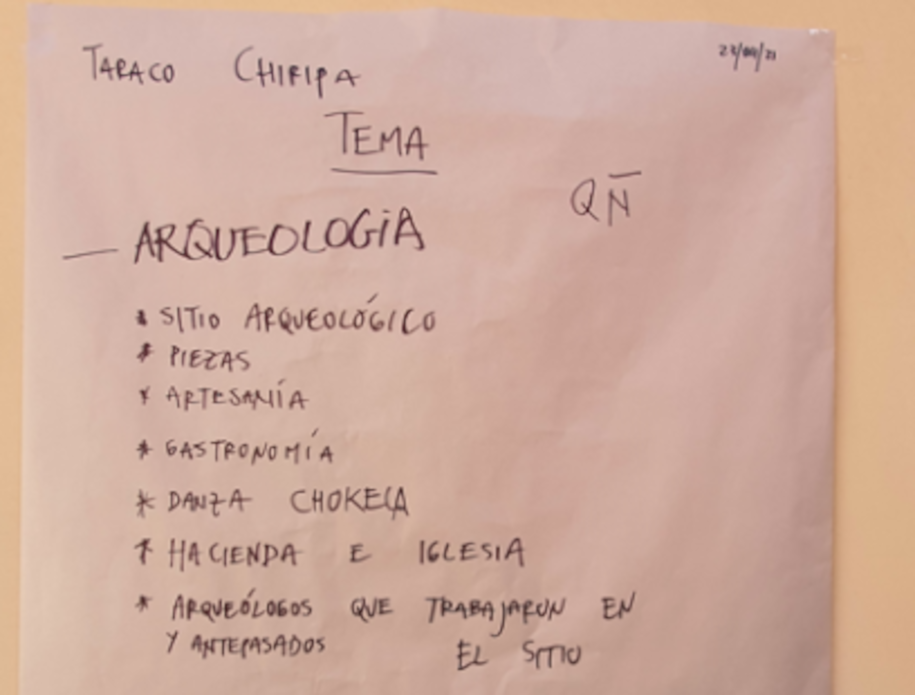 TARACO CHIRIPA
TEMA
QÑ
— ARQUEOLOGÍA
* SITIO ARQUEOLÓGICO
* PIEZAS
* ARTESANÍA
* GASTRONOMÍA
* DANZA CHOKELA
* HACIENDA E IGLESIA
* ARQUEÓLOGOS QUE TRABAJARON EN
Y ANTEPASADOS EL SITIO